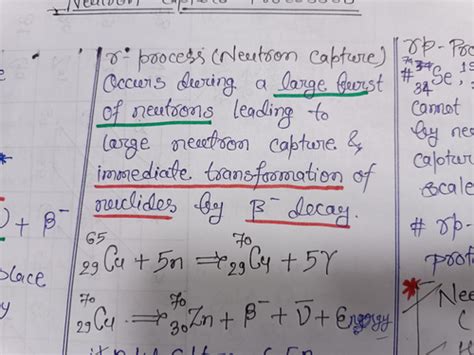 Neutron Capture Processes
r-process (Neutron capture)
Occurs during a large burst
of neutrons leading to
large neutron capture &
immediate transformation of
nuclides by β⁻ decay.
⁶⁵₂₉Cu + 5n ⇒ ⁷⁰₂₉Cu + 5γ
⁷⁰₂₉Cu ⇒ ⁷⁰₃₀Zn + β⁻ + ν̄ + Energy
+ β⁻
place
y
rp-Pro
# ⁷⁴₃₄Se,
cannot
by neu
captur
scale
# rp-
prot
Nee